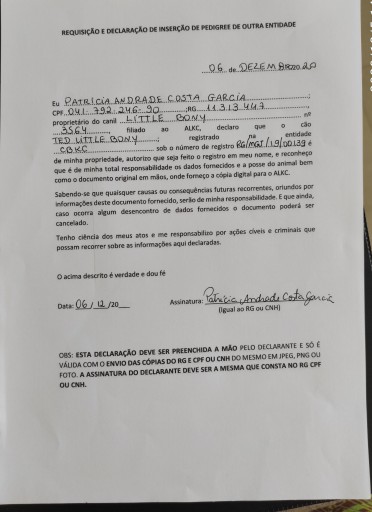 REQUISIÇÃO E DECLARAÇÃO DE INSERÇÃO DE PEDIGREE DE OUTRA ENTIDADE
06 de DEZEMBRO 20 20
Eu PATRÍCIA ANDRADE COSTA GARCIA
CPF 041.792.246-90 ;RG 11313447
proprietário do canil LITTLE BONY nº
3564, filiado ao ALKC, declaro que o cão
TED LITTLE BONY; registrado na entidade
CBKC sob o número de registro RG/MGT/19/00139 é
de minha propriedade, autorizo que seja feito o registro em meu nome, e reconheço
que é de minha total responsabilidade os dados fornecidos e a posse do animal bem
como o documento original em mãos, onde forneço a cópia digital para o ALKC.
Sabendo-se que quaisquer causas ou consequências futuras recorrentes, oriundos por
informações deste documento fornecido, serão de minha responsabilidade. E que ainda,
caso ocorra algum desencontro de dados fornecidos o documento poderá ser
cancelado.
Tenho ciência dos meus atos e me responsabilizo por ações cíveis e criminais que
possam recorrer sobre as informações aqui declaradas.
O acima descrito é verdade e dou fé
Data: 06/12/20 Assinatura: Patrícia Andrade Costa Garcia
(Igual ao RG ou CNH)
OBS: ESTA DECLARAÇÃO DEVE SER PREENCHIDA A MÃO PELO DECLARANTE E SÓ É
VÁLIDA COM O ENVIO DAS CÓPIAS DO RG E CPF OU CNH DO MESMO EM JPEG, PNG OU
FOTO. A ASSINATURA DO DECLARANTE DEVE SER A MESMA QUE CONSTA NO RG CPF
OU CNH.